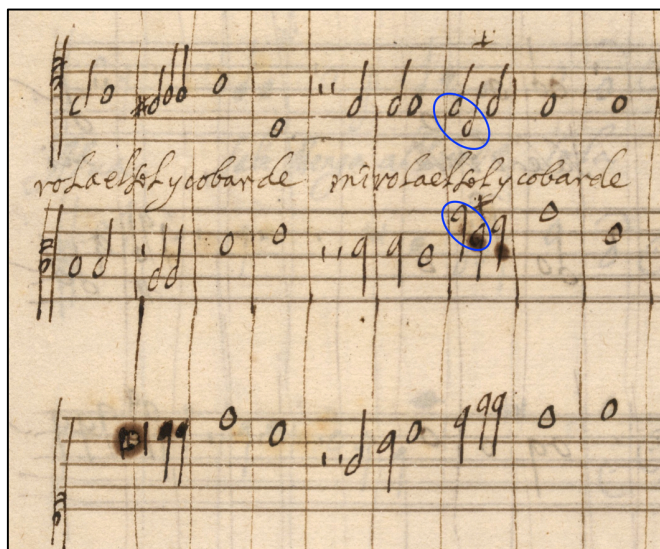 rosaelsolycobarde mirosaelsolycobarde